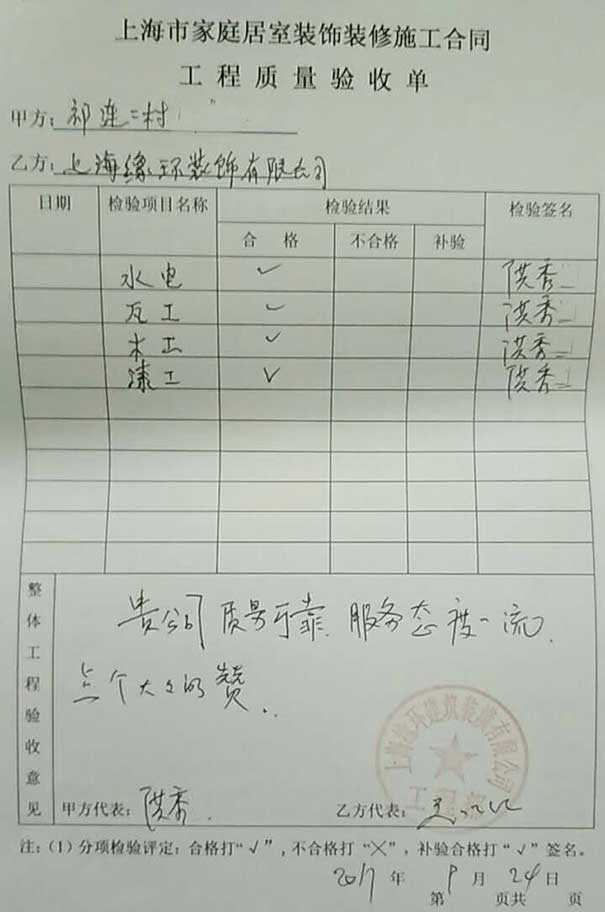 上海市家庭居室装饰装修施工合同
工程质量验收单
甲方：祁连二村
乙方：上海缘环装饰有限公司
日期 检验项目名称 检验结果 检验签名
合格 不合格 补验
水电 ✓ 洪秀
瓦工 ✓ 洪秀
木工 ✓ 洪秀
漆工 ✓ 洪秀
整体工程验收意见
贵公司质量可靠 服务态度一流.
点个大大的赞.
环建筑装潢有限公司
甲方代表：洪秀
乙方代表：
注：（1）分项检验评定：合格打“√”，不合格打“×”，补验合格打“√”签名。
2017年9月24日
第 页共 页